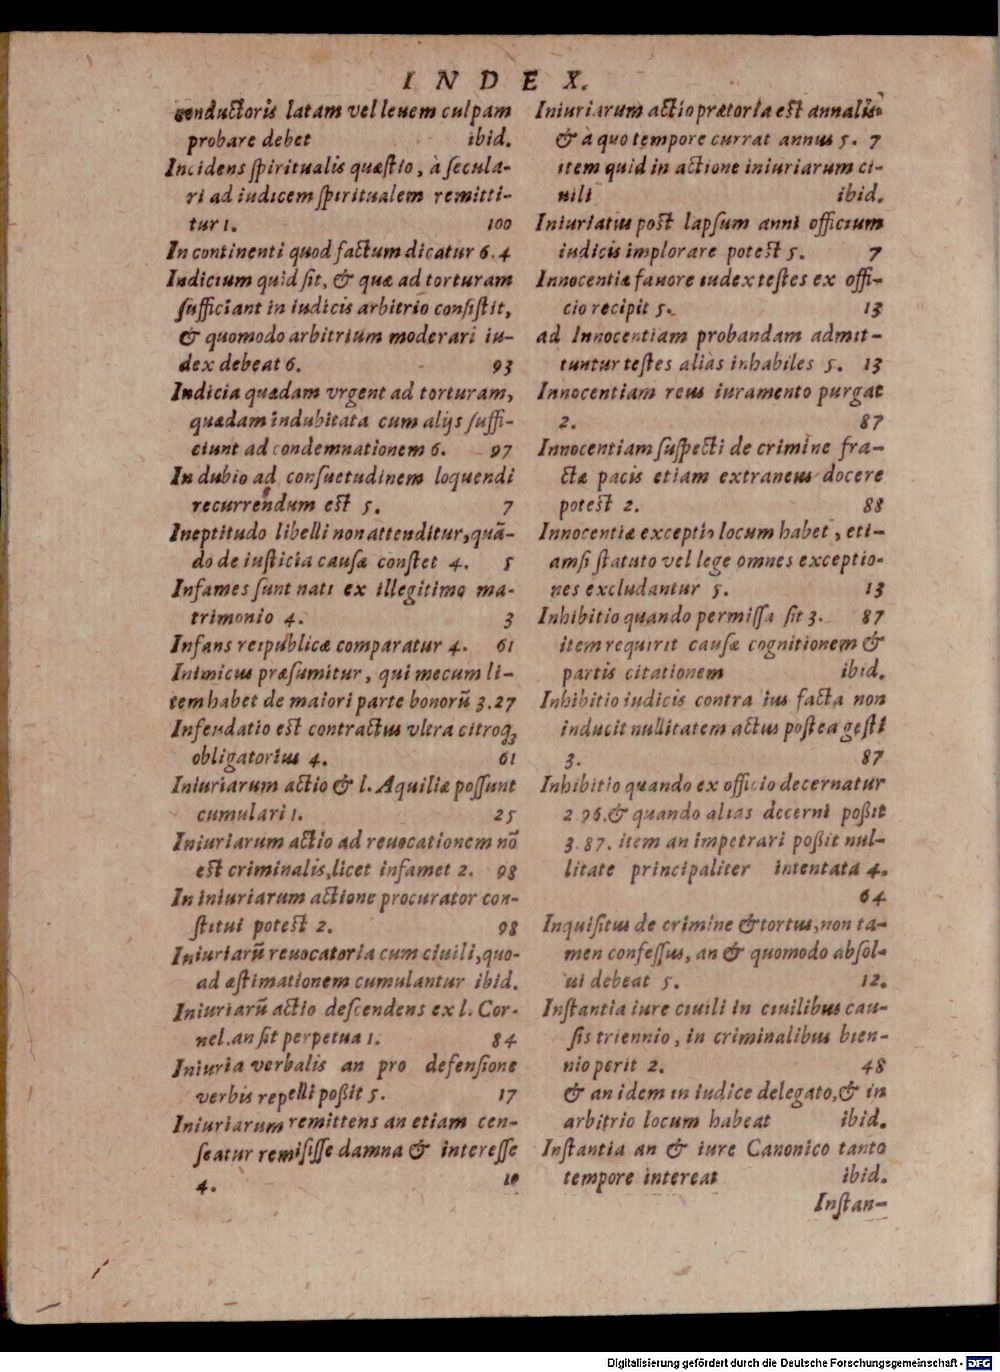 INDEX.
conductoris latam vel leuem culpam
probare debet ibid.
Incidens spiritualis quæstio, à secula-
ri ad iudicem spiritualem remitti-
tur 1. 100
In continenti quod factum dicatur 6. 4
Indicium quid sit, & quæ ad torturam
sufficiant in iudicis arbitrio consistit,
& quomodo arbitrium moderari iu-
dex debeat 6. 93
Indicia quædam vrgent ad torturam,
quædam indubitata cum alijs suffi-
ciunt ad condemnationem 6. 97
In dubio ad consuetudinem loquendi
recurrendum est 5. 7
Ineptitudo libelli non attenditur, quā-
do de iusticia causæ constet 4. 5
Infames sunt nati ex illegitimo ma-
trimonio 4. 3
Infans reipublicæ comparatur 4. 61
Inimicus præsumitur, qui mecum li-
tem habet de maiori parte bonorū 3. 27
Infeudatio est contractus vltra citroq;
obligatorius 4. 61
Iniuriarum actio & l. Aquiliæ possunt
cumulari 1. 25
Iniuriarum actio ad reuocationem nō
est criminalis, licet infamet 2. 98
In iniuriarum actione procurator con-
stitui potest 2. 98
Iniuriarū reuocatoria cum ciuili, quo-
ad æstimationem cumulantur ibid.
Iniuriarū actio descendens ex l. Cor-
nel. an sit perpetua 1. 84
Iniuria verbalis an pro defensione
verbis repelli poßit 5. 17
Iniuriarum remittens an etiam cen-
seatur remisisse damna & interesse
4. 10
Iniuriarum actio prætoria est annalis
& à quo tempore currat annus 5. 7
item quid in actione iniuriarum ci-
uili ibid.
Iniuriatus post lapsum anni officium
iudicis implorare potest 5. 7
Innocentiæ fauore iudex testes ex offi-
cio recipit 5. 13
ad Innocentiam probandam admit-
tuntur testes aliàs inhabiles 5. 13
Innocentiam reus iuramento purgat
2. 87
Innocentiam suspecti de crimine fra-
ctæ pacis etiam extraneus docere
potest 2. 88
Innocentiæ exceptio locum habet, eti-
amsi statuto vel lege omnes exceptio-
nes excludantur 5. 13
Inhibitio quando permissa sit 3. 87
item requirit causæ cognitionem &
partis citationem ibid.
Inhibitio iudicis contra ius facta non
inducit nullitatem actus postea gesti
3. 87
Inhibitio quando ex officio decernatur
2 96. & quando alias decerni poßit
3. 87. item an impetrari poßit nul-
litate principaliter intentata 4.
64
Inquisitus de crimine & tortus, non ta-
men confessus, an & quomodo absol-
ui debeat 5. 12.
Instantia iure ciuili in ciuilibus cau-
sis triennio, in criminalibus bien-
nio perit 2. 48
& an idem in iudice delegato, & in
arbitrio locum habeat ibid.
Instantia an & iure Canonico tanto
tempore intereat ibid.
Instan-
Digitalisierung gefördert durch die Deutsche Forschungsgemeinschaft - DFG